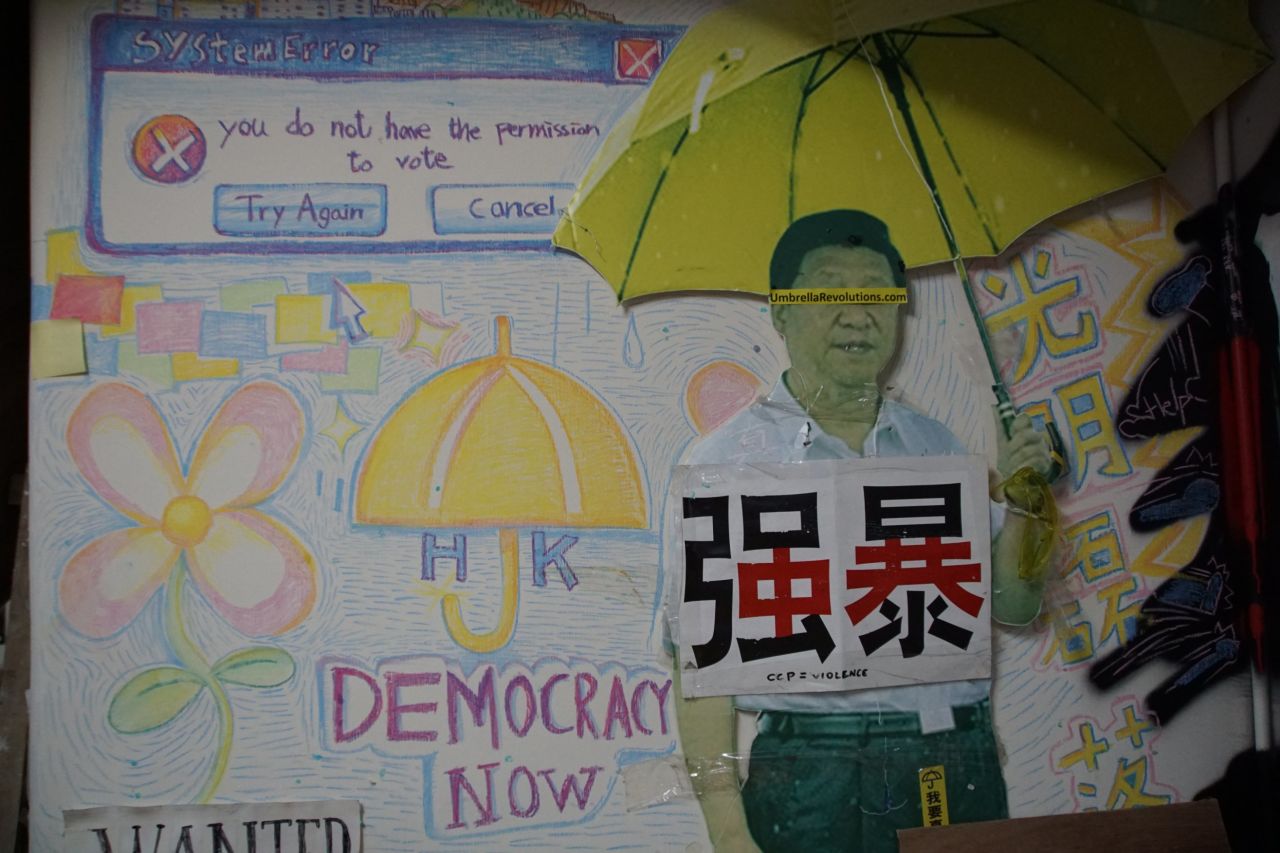 SYStemError
you do not have the permission
to vote
Try Again
Cancel
UmbrellaRevolutions.com
光明磊落
强暴
CCP = VIOLENCE
H K
DEMOCRACY
NOW
WANTED
我要真